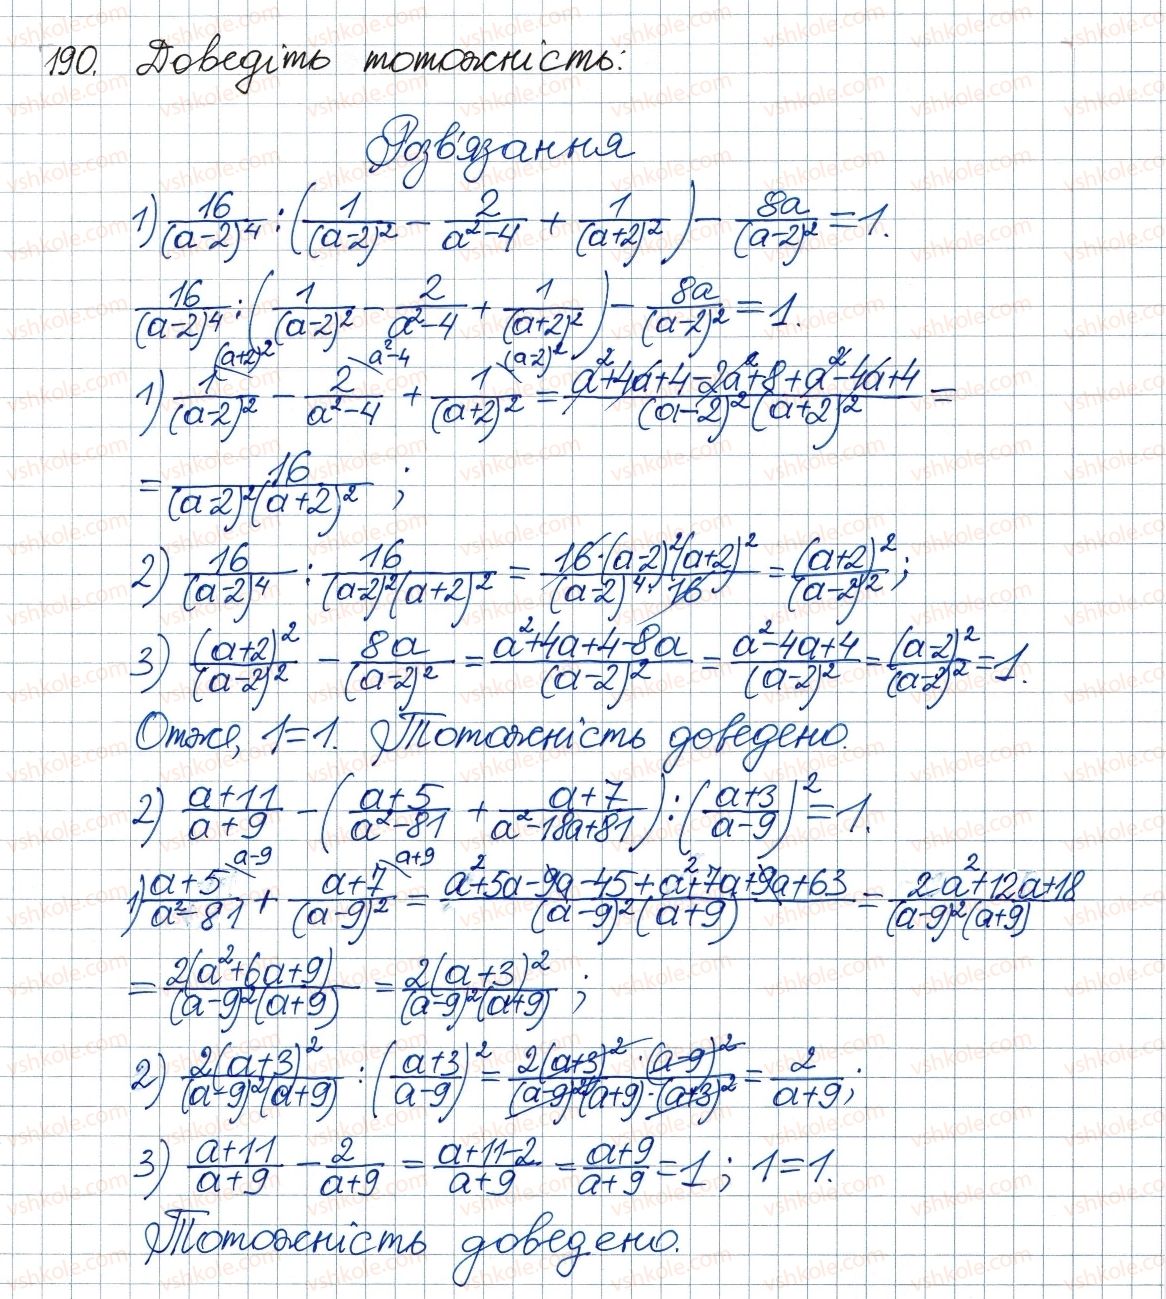 190. Доведіть тотожність:
Розв'язання
1) 16/(a-2)^4 : (1/(a-2)^2 - 2/(a^2-4) + 1/(a+2)^2) - 8a/(a-2)^2 = 1.
16/(a-2)^4 : (1/(a-2)^2 - 2/(a^2-4) + 1/(a+2)^2) - 8a/(a-2)^2 = 1.
(a+2)^2 a^2-4 (a-2)^2
1) 1/(a-2)^2 - 2/(a^2-4) + 1/(a+2)^2 = (a^2+4a+4-2a^2+8+a^2-4a+4)/((a-2)^2(a+2)^2) =
= 16/((a-2)^2(a+2)^2) ;
2) 16/(a-2)^4 : 16/((a-2)^2(a+2)^2) = (16·(a-2)^2(a+2)^2)/((a-2)^4·16) = (a+2)^2/(a-2)^2 ;
3) (a+2)^2/(a-2)^2 - 8a/(a-2)^2 = (a^2+4a+4-8a)/(a-2)^2 = (a^2-4a+4)/(a-2)^2 = (a-2)^2/(a-2)^2 = 1.
Отже, 1=1. Тотожність доведено.
2) (a+11)/(a+9) - ((a+5)/(a^2-81) + (a+7)/(a^2-18a+81)) : ((a+3)/(a-9))^2 = 1.
a-9 a+9
1) (a+5)/(a^2-81) + (a+7)/(a-9)^2 = (a^2+5a-9a-45+a^2+7a+9a+63)/((a-9)^2(a+9)) = (2a^2+12a+18)/((a-9)^2(a+9))
= 2(a^2+6a+9)/((a-9)^2(a+9)) = 2(a+3)^2/((a-9)^2(a+9)) ;
2) 2(a+3)^2/((a-9)^2(a+9)) : ((a+3)/(a-9))^2 = (2(a+3)^2·(a-9)^2)/((a-9)^2(a+9)·(a+3)^2) = 2/(a+9) ;
3) (a+11)/(a+9) - 2/(a+9) = (a+11-2)/(a+9) = (a+9)/(a+9) = 1 ; 1=1.
Тотожність доведено.